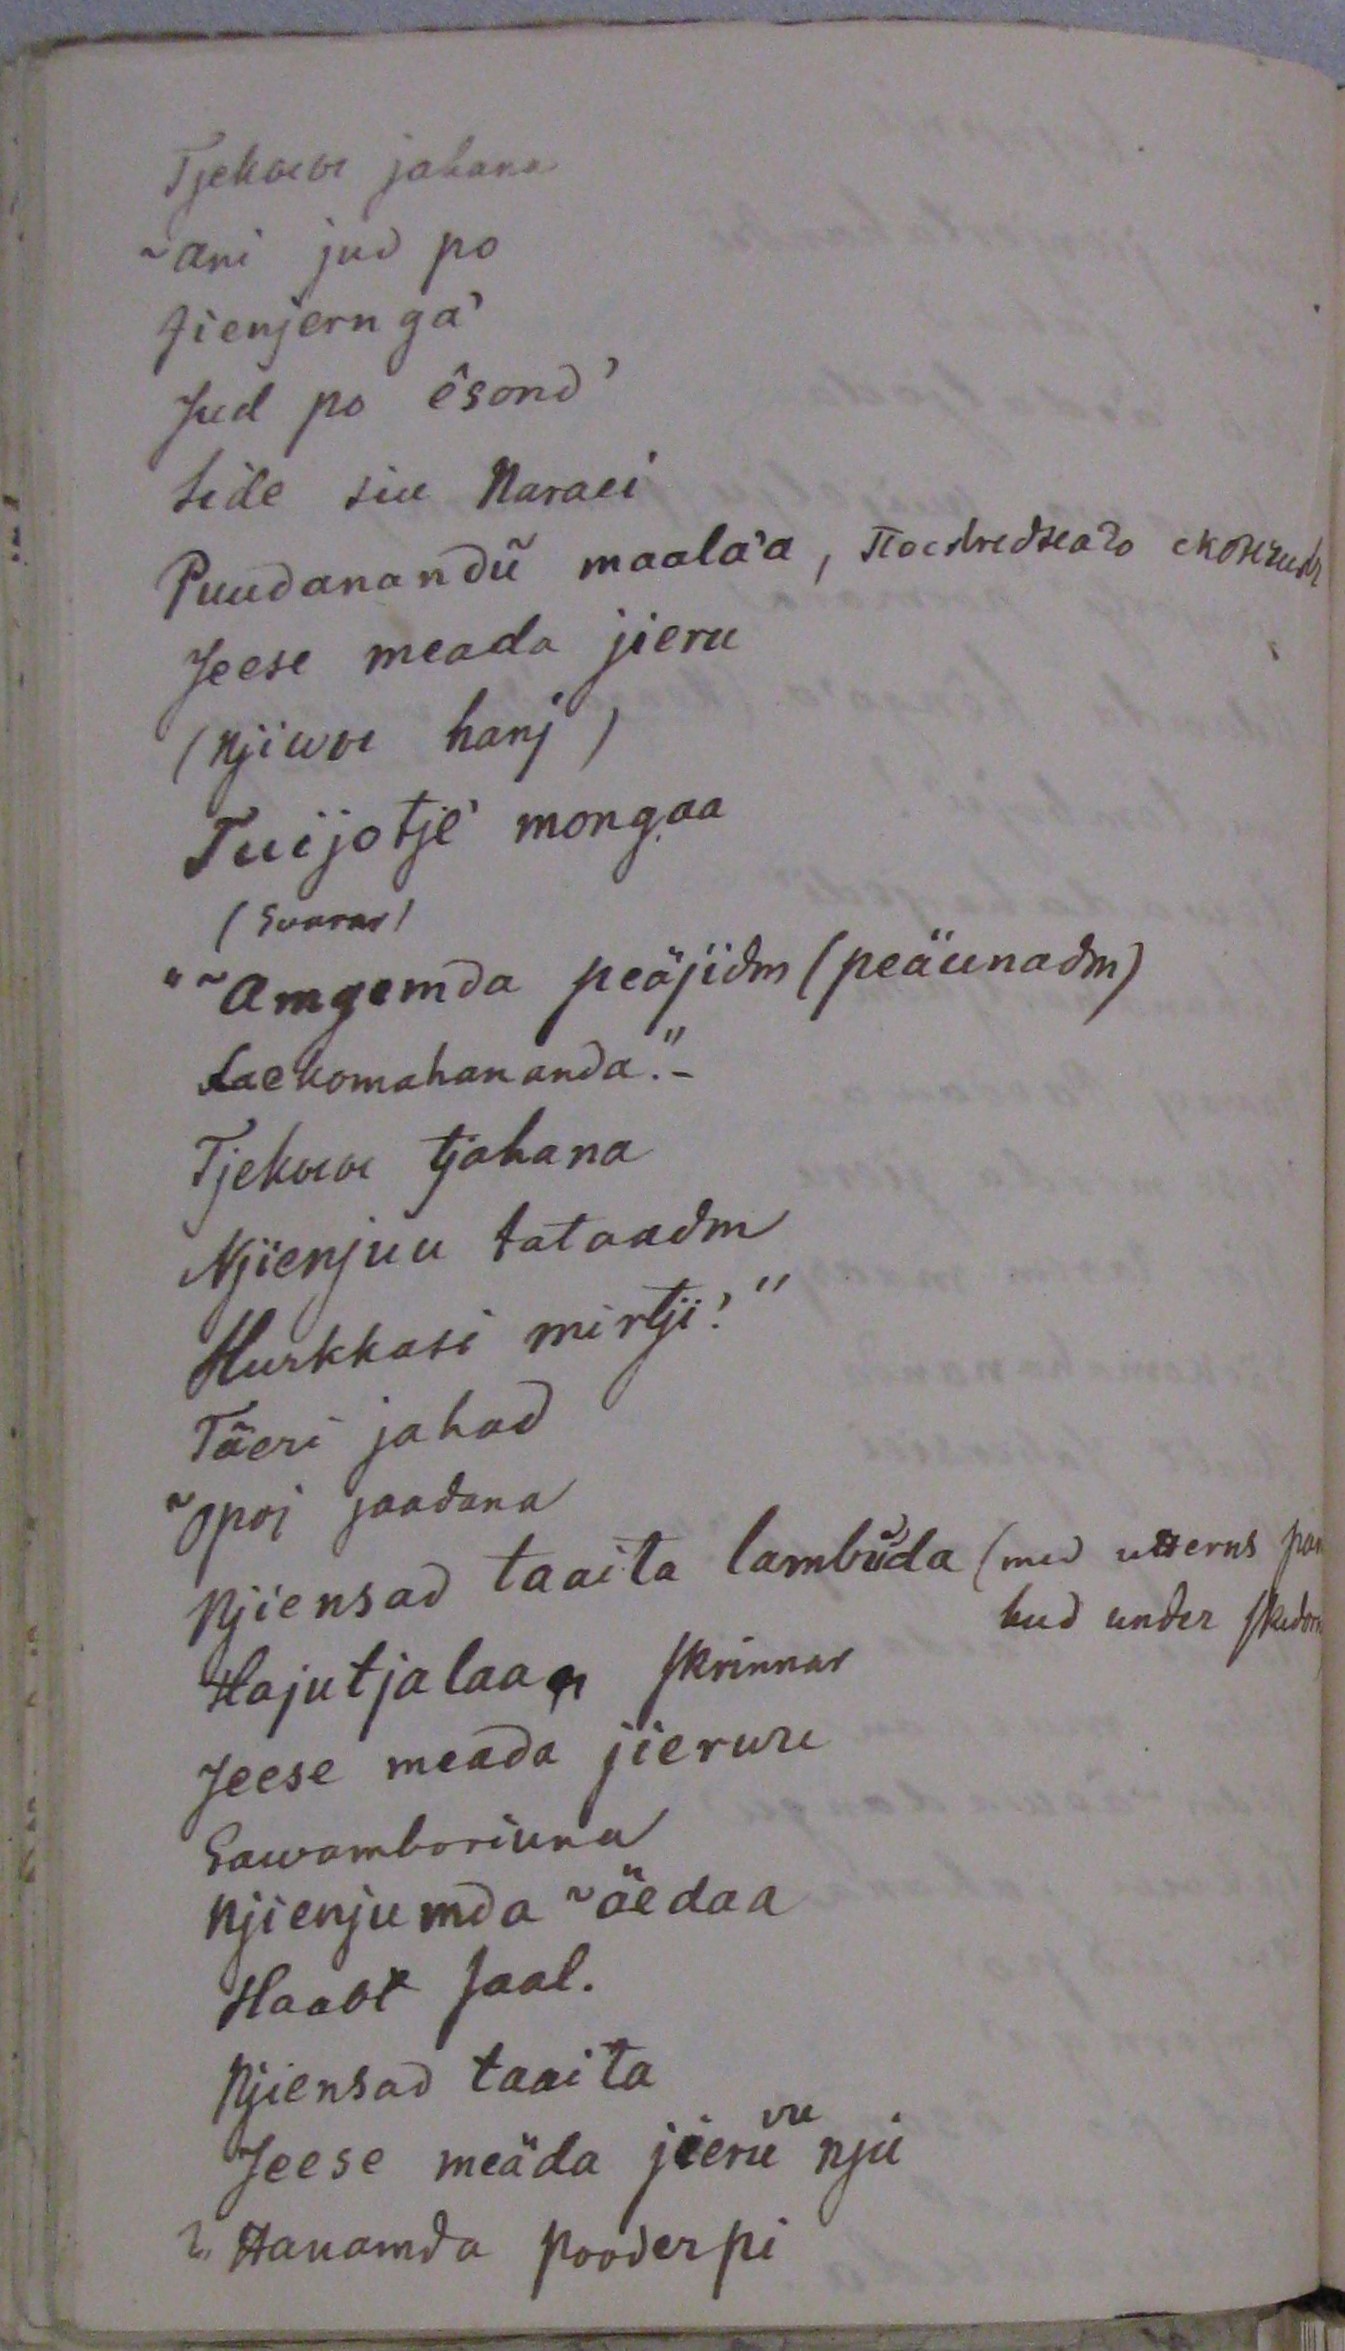 Tjekaeae jahana
~ani jud po
jienjernga'
Jud po êsond'
Side siu Naraei
Puudanandũ maala'a, Последнеаго
Jeese meada jieru
(Njiwae hanj)
Tuijotje' mongaa
(Svarar)
"~Amgemda peäjidm (peäunadm)
Laekomahananda."-
Tjekaeae tjahana
Njienjuu tataadm
Hurkkasi mirtji!"
Tãeri jahad
~Opoj jaadana
Njiensad taaita lambũda (med utterns
hud under
Hajutjalaa skrinnar
Jeese meada jieruu
Sawamboriuna
njienjumda ~äedaa
Haaot saal.
Njiensad taaita
Jeese meäda jieruu njü
Hauamda pooderpi